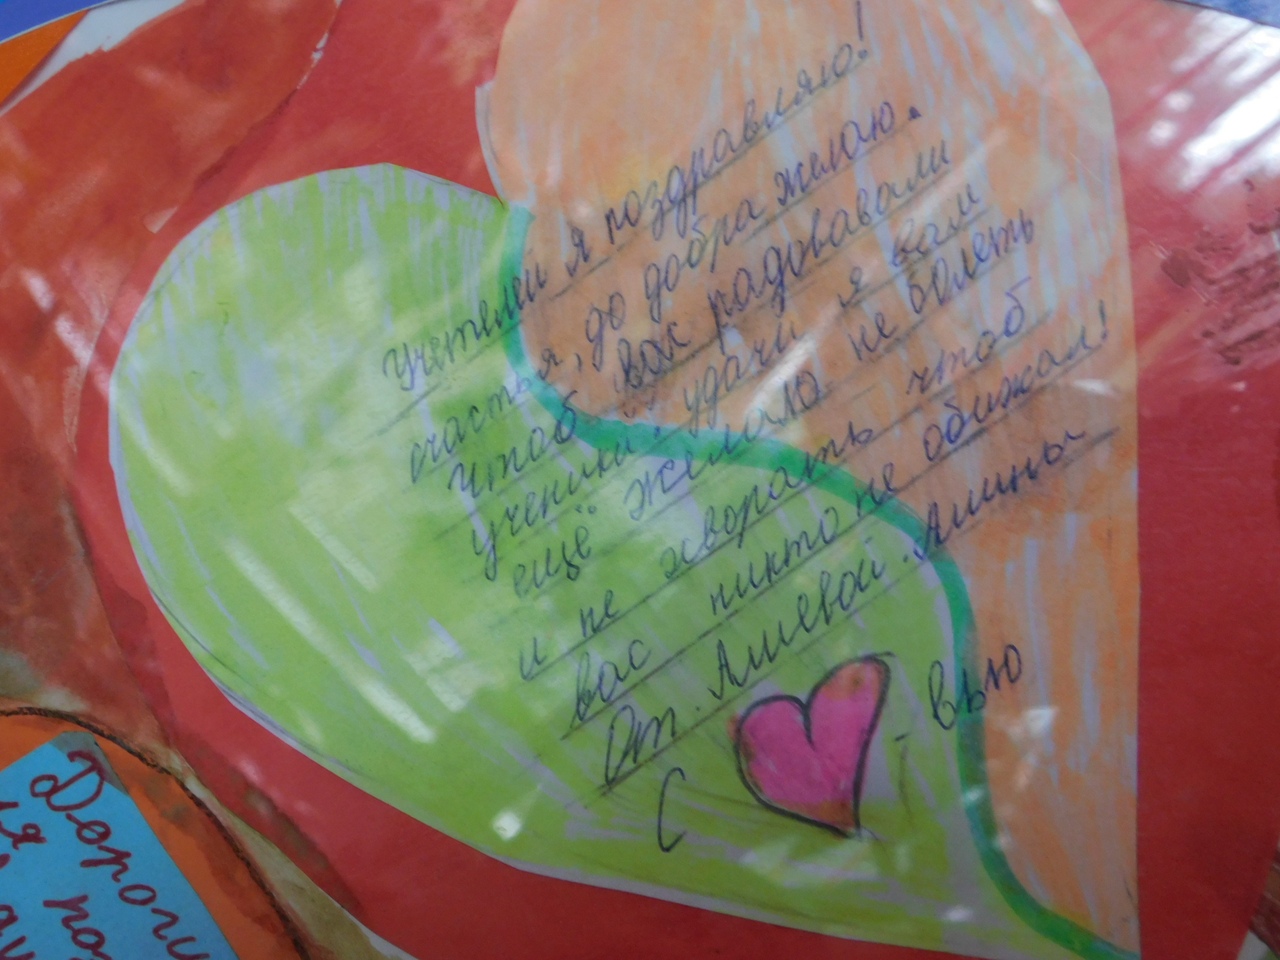 учителей я поздравляю!
счастья, до добра желаю.
Чтоб вас радовавали
ученики! удачи я вам
ещё желаю не болеть
и не хворать чтоб
вас никто не обижал!
От. Алиевой. Амины
С - вью
Дороги